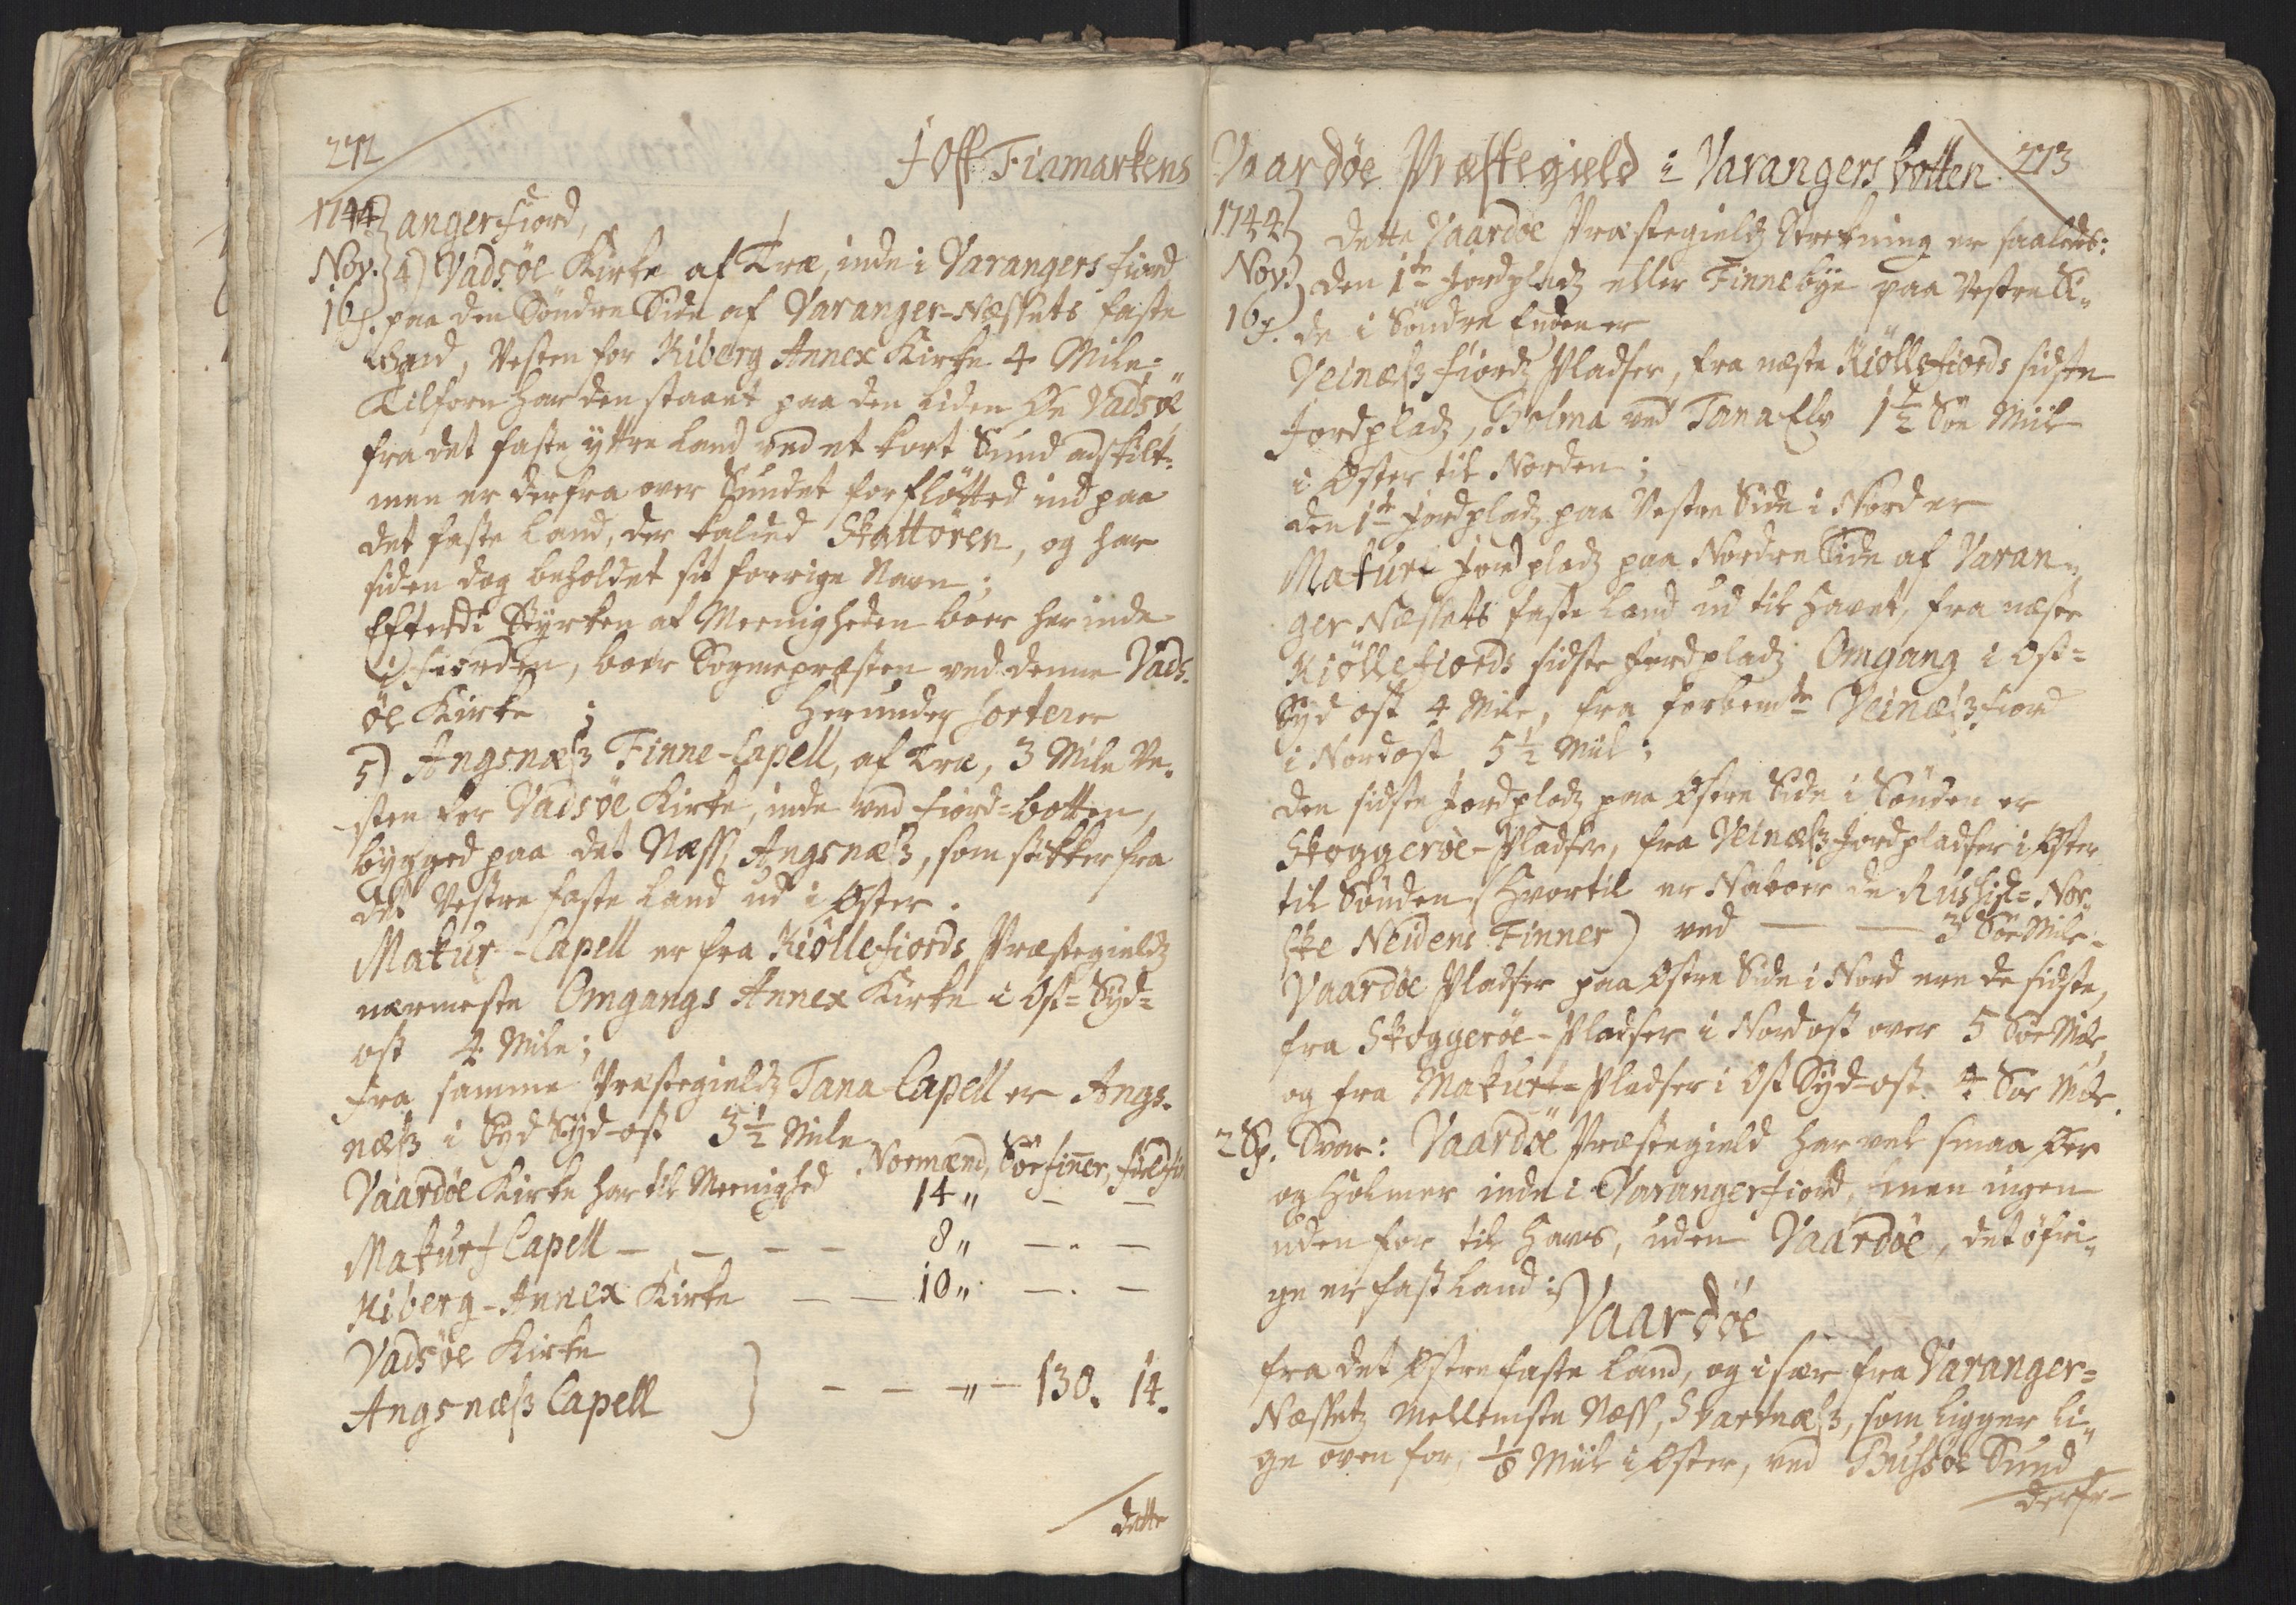 272
I Ost Finmarkens
1744 angerfiord,
Nov. 4) Vadsöe Kirke af Træ, inde i Varangers fiord
16 f. paa den Söndre Side af Varanger-Næssets faste
Land, Vesten for Kiberg Annex Kirke 4 Mile;
Tilforn har den staaet paa den liden Öe Vadsöe
fra det faste yttre Land ved et kort Sund adskilt;
men er derfra over Sundet forflötted ind paa
det faste Land, der kalded Skattören, og har
siden dog beholdet sit forrige Navn;
Efterdi Styrken af Meenigheden boer her inde
i Fiorden, boer Sognepræsten ved denne Vads-
öe Kirke; Herunder sorterer
5) Angsnæss Finne-Capell, af Træ, 3 Mile Ve-
sten for Vadsöe Kirke, inde ved fiord-botten,
bygged paa det Næss, Angsnæss, som stikker fra
det Vestre faste Land ud i Öster.
Makur-Capell er fra Kiöllefiords Præstegieldz
nærmeste Omgangs Annex Kirke i Ost-Syd-
ost 4 Mile;
fra samme Præstegieldz Tana Capell er Angs-
næss i Syd Syd-ost 3½ Mile
Normænd, Söefinner, fieldfin
Vaardöe Kirke har til Meenighed 14 „ — —
Makurs Capell — — — — 8 „ — . —
Kiberg-Annex Kirke — — 10 „ — . —
Vadsöe Kirke
Angsnæss Capell } — — „ — 130. 14.
dette
Vaardöe Præstegield i Varangers botten 273
1744 Dette Vaardöe Præstegieldz Strekning er saaledes:
Nov. den 1te Jordpladz eller Finnebye paa Vestre Si-
16 f. de i Söndre Enden er
Veinæss fiordz Pladser, fra næste Kiöllefiords sidste
Jordpladz, Golma ved Tana Elv 1½ Söe Miil
i Öster til Norden;
den 1te Jordpladz paa Vestre Side i Nord er
Makur Jordpladz paa Nordre Side af Varan-
ger Næssets faste Land ud til Havet, fra næste
Kiöllefiords sidste Jordpladz Omgang i Ost-
Syd ost 4 Mile, fra forbemte Veinæss fiord
i Nordost 5½ Miil;
den sidste Jordpladz paa Östre Side i Sönden er
Skoggeröe-Pladser, fra Veinæss Jordpladser i Öster
til Sönden (Hvortil er Naboer de Russisk-Nor-
ske Neidens Finner) ved — — 3 Söe Mile
Vaardöe Pladser paa Östre Side i Nord ere de sidste,
fra Skoggeröe-Pladser i Nordost over 5 Söe Mile,
og fra Makurs-Pladser i Ost Syd-ost. 4 Söe Mile.
2 Sp. Svar: Vaardöe Præstegield har vel smaa Öer
og Holmer inde i Varangerfiord, men ingen
uden for til Havs, uden Vaardöe, det öfri-
ge er fast Land;
Vaardöe
fra det Östre faste Land, og især fra Varanger-
Næssetz mellemste Næss, Svartnæss, som ligger li-
ge oven for, ⅛ Miil i Öster, ved Bussöe Sund
derfra